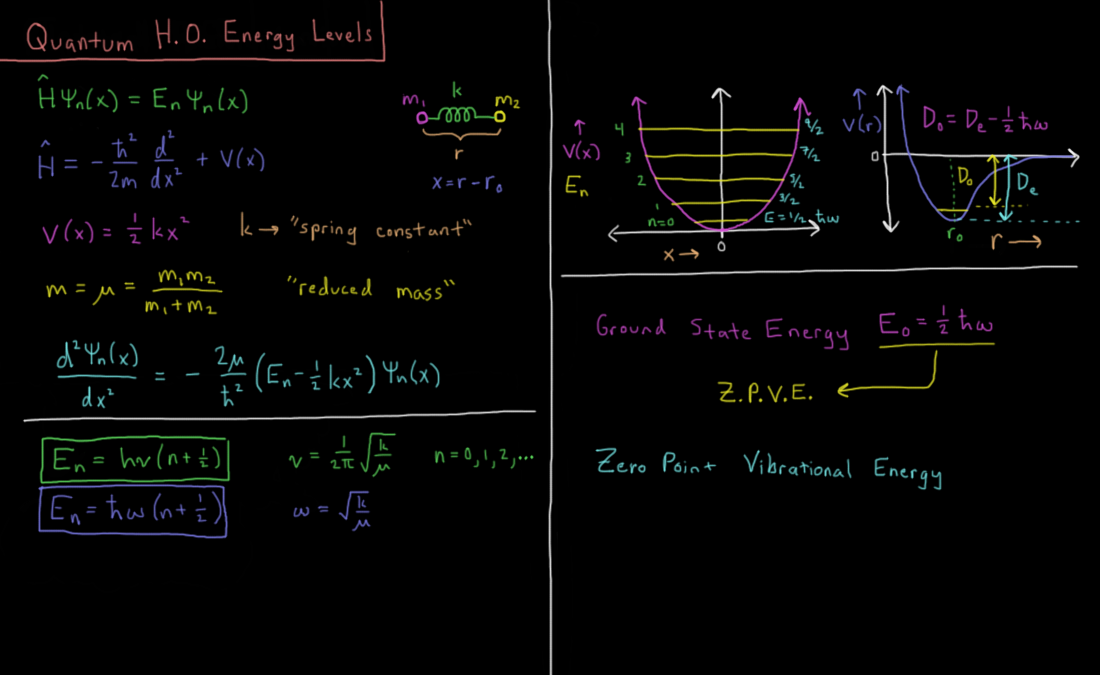 Quantum H.O. Energy Levels
ĤΨₙ(x) = EₙΨₙ(x)
Ĥ = -ħ²/2m d²/dx² + V(x)
V(x) = ½ kx² k → "spring constant"
m = μ = m₁m₂/(m₁+m₂) "reduced mass"
d²Ψₙ(x)/dx² = -2μ/ħ² (Eₙ - ½ kx²) Ψₙ(x)
Eₙ = hν(n+½) ν = 1/2π √(k/μ) n = 0, 1, 2, ...
Eₙ = ħω(n+½) ω = √(k/μ)
k
m₁ m₂
r
x = r - r₀
↑
V(x)
Eₙ
4 9/2
3 7/2
2 5/2
1 3/2
n=0 E = 1/2 ħω
x → 0
↑
V(r)
D₀ = Dₑ - ½ ħω
0
D₀ Dₑ
r₀ r →
Ground State Energy E₀ = ½ ħω
Z.P.V.E.
Zero Point Vibrational Energy